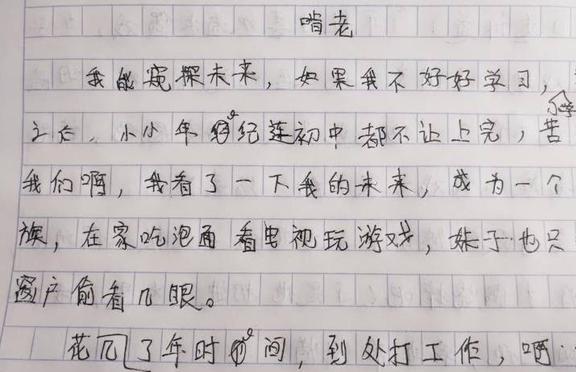 啃老
我能窥探未来，如果我不好好学习，
之后，小小年纪连初中都不让上完，苦
我们啊，我看了一下我的未来，成为一个
族，在家吃泡面看电视玩游戏，妹子也只
窗户偷看几眼。
花几了年时间，到处打工作，啊